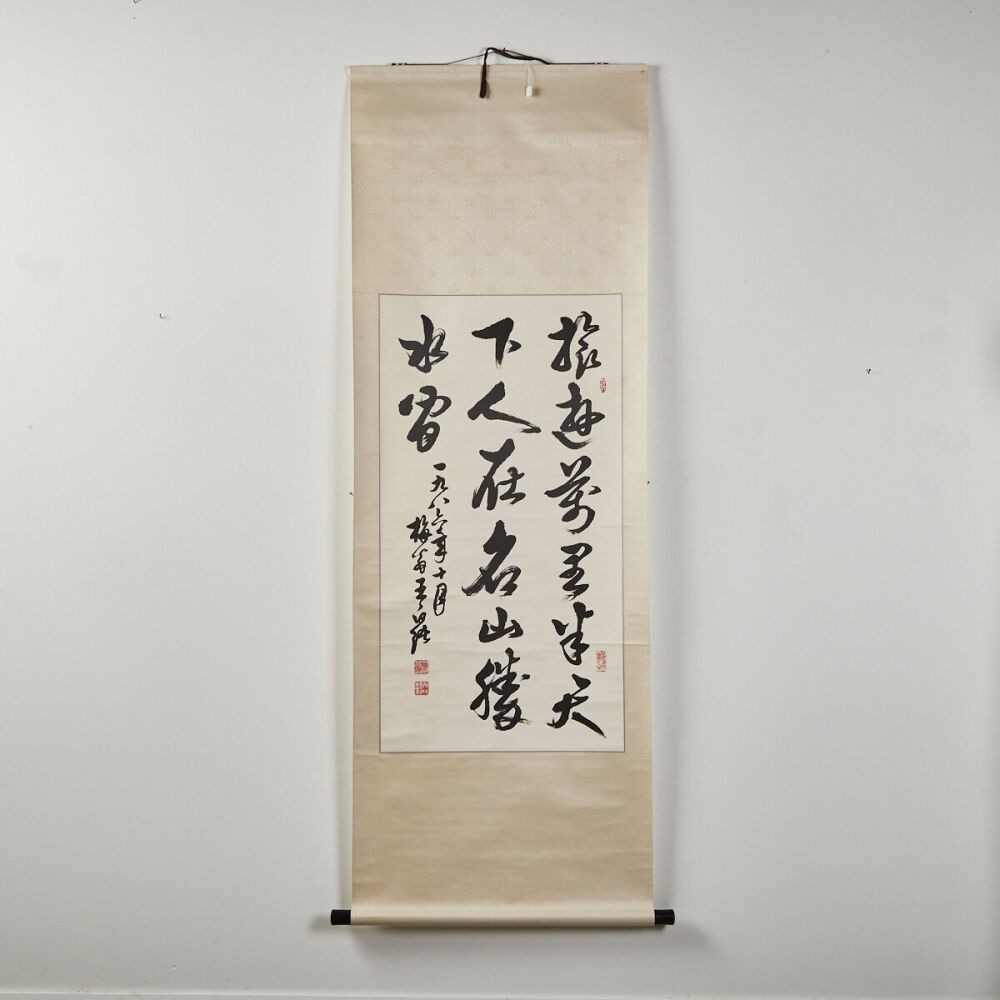 旅遊萬里半天
下人在名山勝
水間
一九八六年十月
梅翁王